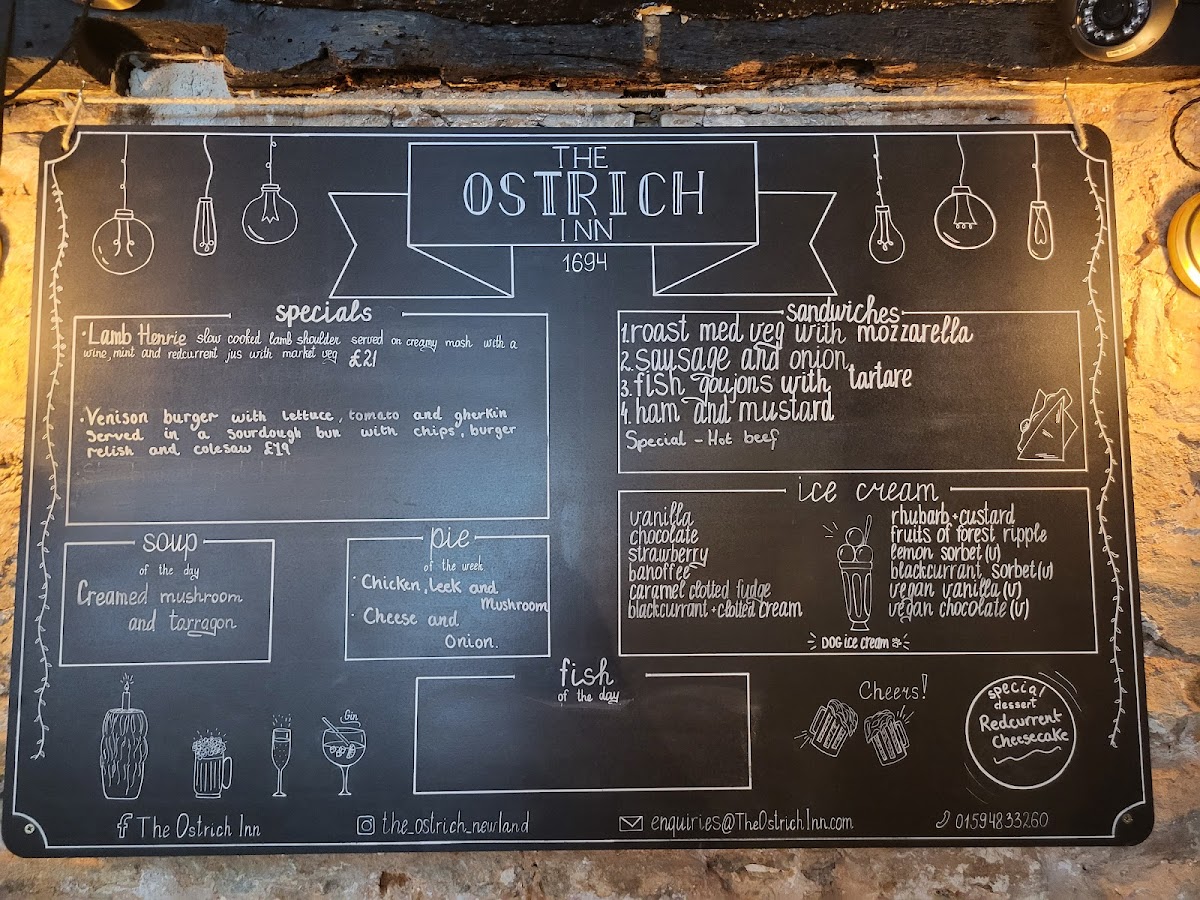 THE
OSTRICH
INN
1694
specials
·Lamb Henrie slow cooked lamb shoulder served on creamy mash with a
wine, mint and redcurrent jus with market veg £21
·Venison burger with lettuce, tomato and gherkin
Served in a sourdough bun with chips, burger
relish and coleslaw £19
soup
of the day
Creamed mushroom
and tarragon
pie
of the week
· Chicken, Leek and
Mushroom
· Cheese and
Onion.
fish
of the day
sandwiches
1. roast med veg with mozzarella
2. sausage and onion
3. fish goujons with tartare
4. ham and mustard
Special - Hot beef
ice cream
vanilla
chocolate
strawberry
banoffee
caramel clotted fudge
blackcurrant + clotted cream
rhubarb + custard
fruits of forest ripple
lemon sorbet (v)
blackcurrant sorbet (v)
vegan vanilla (v)
vegan chocolate (v)
DOG ice cream
Gin
Cheers!
special
dessert
Redcurrent
Cheesecake
The Ostrich Inn
the_ostrich_newland
enquiries@TheOstrichInn.com
01594833260